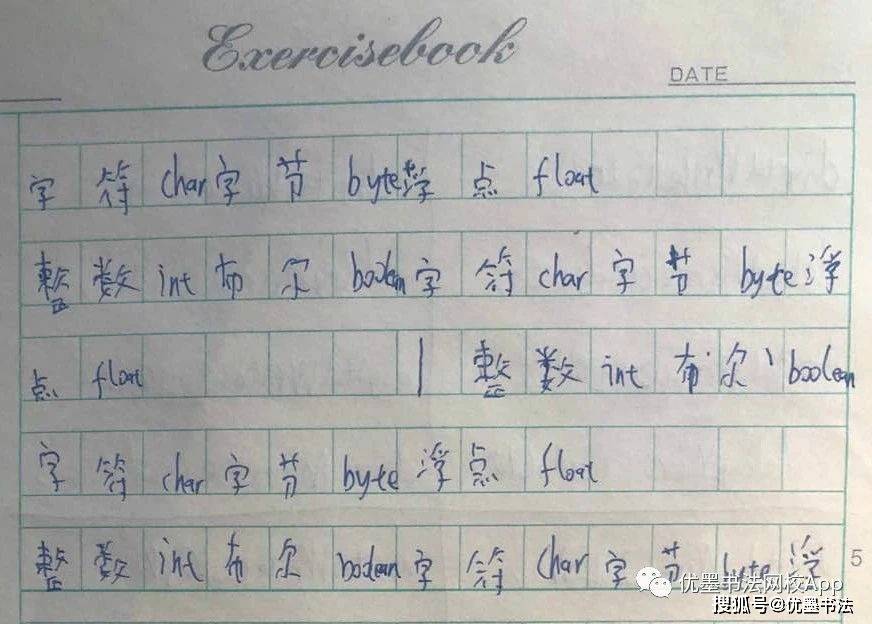 Exercisebook
DATE
字符char字节byte浮点float
整数int布尔boolean字符char字节byte浮
点float | 整数int布尔boolean
字符char字节byte浮点float
整数int布尔boolean字符char字节byte浮
5
优墨书法网校App
搜狐号@优墨书法